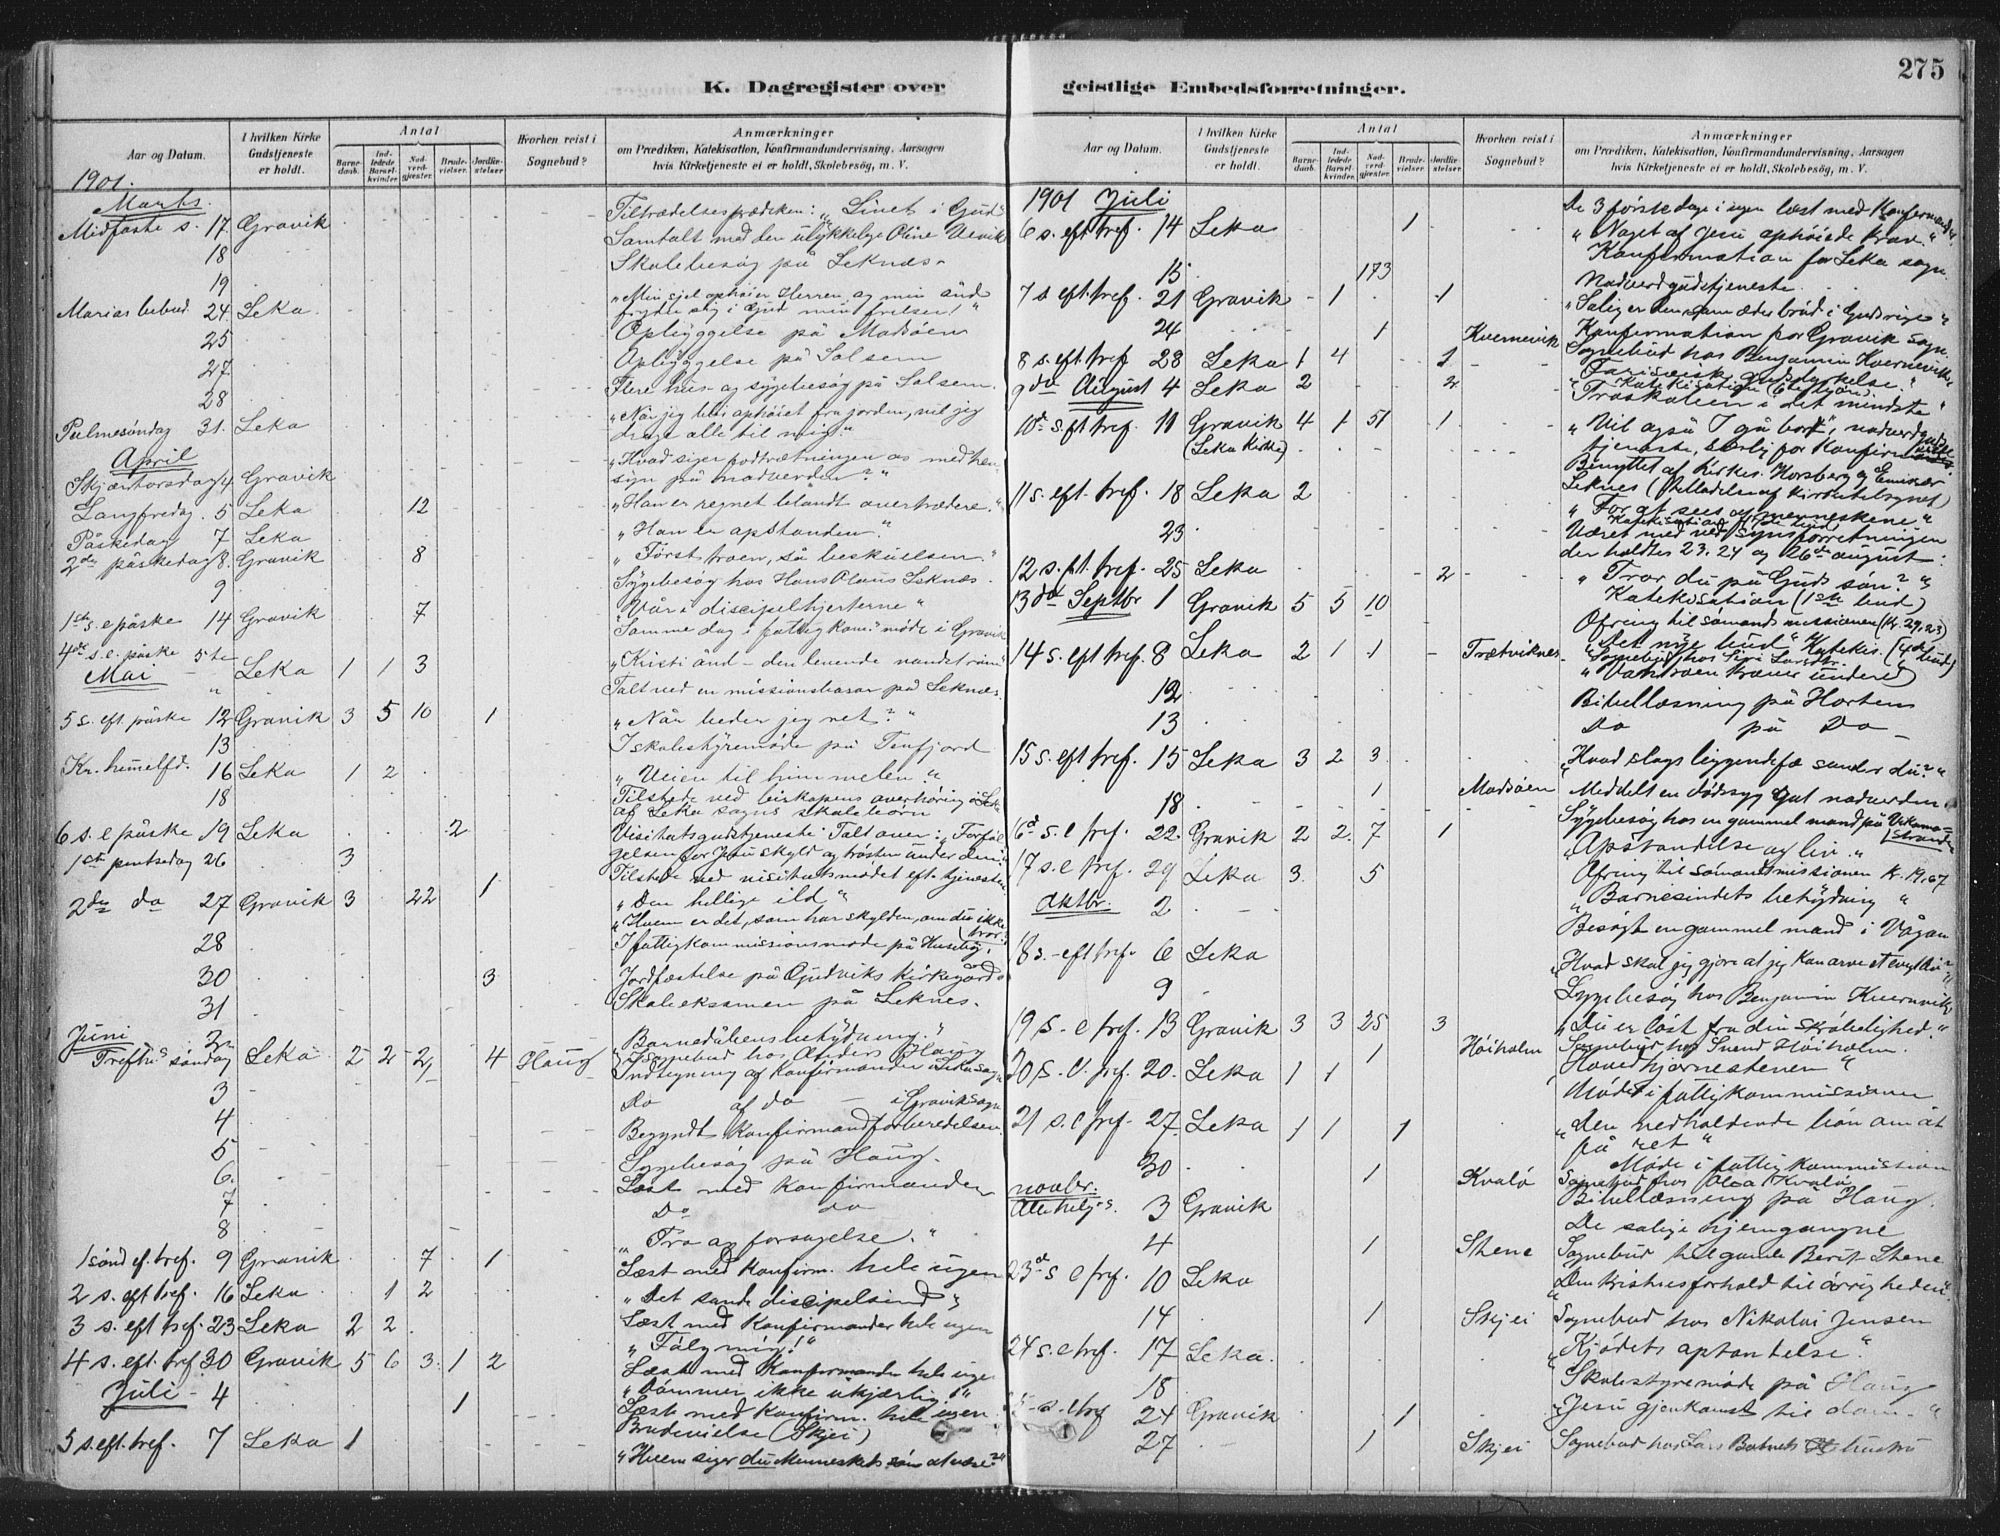 275
K. Dagregister over
geistlige Embedsforretninger.
Aar og Datum.
I hvilken Kirke Gudstjeneste er holdt.
Antal
Barnedaab.
Indledede Barselkvinder.
Nadverdgjester.
Brudevielser.
Jordfæstelser.
Hvorhen reist i Sognebud?
Anmærkninger
om Prædiken, Katekisation, Konfirmandundervisning, Aarsagen
hvis Kirketjeneste ei er holdt, Skolebesøg, m. V.
1901.
Marts.
Midfaste s. 17. Gravik Tiltrædelsesprædiken: "Livet i Gud"
18 Samtalt med den ulykkelige Oline
19 Skolebesøg på Leknes
Marias bebud. 24. Leka "Min sjel ophøier Herren og min ånd
fryder sig i Gud min frelser!"
25 Opbyggelse på Madsøen
27. Opbyggelse på Solsem
28 Flere hus- og sygebesøg på Solsem.
Palmesøndag 31. Leka "Når jeg blir ophøiet fra jorden, vil jeg
drage alle til mig."
April
Skjærtorsdag 4 Gravik "Hvad siger fodtvætningen os med hen-
syn på nadverden?"
Langfredag 5 Leka 12 "Han er regnet blandt overtrædere."
Påskedag 7 Leka "Han er opstanden."
2den påskedag 8. Gravik 8 "Først troen, så beskuelsen."
9 Sygebesøg hos Hans Olaus Leknes.
1ste s. e påske 14 Gravik 7 "Vår i discipelhjerterne"
Samme dag i fattigkom.s møde i Gravik
4de s. e. påske
Mai 5te Leka 1 1 3 "Kristi ånd – den levende vandstrøm"
" Talt ved en missionsbasar på Leknes.
5 s. eft. påske 12 Gravik 3 5 10 1 "Når beder jeg ret?"
13 I skolestyremøde på
Kr. himmelfd. 16 Leka 1 2 "Veien til himmelen."
18 Tilstede ved biskopens overhøring i Leka
af Leka sogns skolebørn
6 s. e påske 19 Leka 2 Visitatsgudstjeneste. Talt over: "Forføl
gelsen for Jesu skyld og trøsten under den"
1ste pintsedag 26 3 Tilstede ved visitatsmødet eft. tjenesten
"Den hellige ild"
2den do 27 Gravik 3 22 1 "Hvem er det, som har skylden, om du ikke
tror?"
28 I fattigkommissionsmøde på Husebø.
30 3 Jordfæstelse på Gutviks kirkegård
31 Skoleeksamen på Leknes.
Juni 2
Trefth.s søndag Leka 2 2 2 4 Haug Barnedåbens betydning."
Sognebud hos Anders Haug
Indtegning af konfirmander i Leka sogn
3 Do af do – i Gravik sogn
4 Begyndt konfirmandforberedelsen.
5 Sygebesøg på Haug.
6. Læst med konfirmanden
7 Do do
8
1 sønd ef. tref. 9 Gravik 7 1 "Tro og forsagelse."
Læst med konfirm. hele ugen
2 s. eft tref. 16 Leka 1 2 "Det sande discipelsind"
3 s. eft tref. 23 Leka 2 2 Læst med konfirmander hele ugen
"Følg mig!"
4 s. eft. tref 30 Gravik 5 6 3 1 2 Læst med konfirmander hele ugen
"Dømmer ikke ukjærlig!"
Juli 4 1 Læst med konfirm. hele ugen.
Brudevielse (Skjei)
5 s. eft. tref. 7 Leka 1 "Hvem siger du Menneskets søn at være?"
Aar og Datum.
I hvilken Kirke Gudstjeneste er holdt.
Antal
Barnedaab.
Indledede Barselkvinder.
Nadverdgjester.
Brudevielser.
Jordfæstelser.
Hvorhen reist i Sognebud?
Anmærkninger
om Prædiken, Katekisation, Konfirmandundervisning, Aarsagen
hvis Kirketjeneste ei er holdt, Skolebesøg, m. V.
1901 Juli
De 3 første dage i ugen læst med Konfermander
6 s. eft tref. 14 Leka 1 "Noget af Jesu ophøiede krav."
Konfirmation for Leka sogn
15 173 Nadverdgudstjeneste
7 s. eft. tref. 21 Gravik 1 1 "Salig er den, som æder brød i Guds rige"
Konfirmation for Gravik sogn.
24 1 Kvernevik Sognebud hos Benjamin Kvernevik
8 s. eft tref 28 Leka 1 4 1 "Farisæisk gudsdyrkelse."
9de August 4 Leka 2 2 "Troskaben i det mindste"
10de s. eft tref. 11 Gravik 4 1 51 1 "Vil også I gå bort", nadverdguds
(Leka Kirke) tjeneste, særlig for Konfermander
Benyttet af kirkes. Horsberg og Emissær
Leknes
11 s. eft. tref. 18 Leka 2 "For at sees af menneskene"
23 Været med ved synsforretningen
der holdtes 23. 24 og 26de august.
12 s. eft. tref. 25 Leka 2 "Tror du på Guds søn?"
Katekisation (1ste bud)
13de Septbr 1 Gravik 5 5 10 Ofring til sømandsmissionen (Kr. 29,23)
14 s. eft tref. 8 Leka 2 1 1 Trætviknes "Det nye bud" Katekis. (4de bud)
12 Bibellæsning på Horten
13 Do på Do
15 s. eft tref. 15 Leka 3 2 3 "Hvad slags liggendefæ samler du?"
18 1 Madsøen Meddelt en dødssyg gut nadverden
Sygebesøg hos en gammel mand på
16de s. e tref. 22. Gravik 2 2 7 1 "Opstandelse og liv."
17 s. e tref. 29 Leka 3 5 Ofring til sømandsmissionen K. 19,67
"Barnesindets betydning"
Oktbr. 2 Besøgt en gammel mand i Vågan
18 s. eft tref. 6 Leka "Hvad skal jeg gjøre at jeg kan arve et evigt liv?"
9 Sygebesøg hos Benjamin Kvernvik
19 s. e tref. 13 Gravik 3 3 25 3 "Du er løst fra din skrøbelighed."
1 Høiholm Sognebud hos Svend Høiholm.
20 s. e. tref. 20. Leka 1 1 "Hovedhjørnestenen"
Mødet i fattigkommissionen
21 s. e tref. 27. Leka 1 1 1 "Den vedholdende bøn om at
få ret"
30 Møde i fattigkommission
1 Kvalø Sognebud hos Olsa Kvalø
novbr. Bibellæsning på Haug.
Allehelg.s. 3 Gravik De salige hjemgangne
4 1 Stene Sognebud hos gamle Berit Stene
23de s e tref. 10 Leka "Den kristnes forhold til øvrigheden"
14 1 Skjei Sognebud hos Nikolai Jensen
24 s. e tref. 17 Leka. "Kjødets opstandelse."
18 Skolestyremøde på Haug
s. e tref 24 Gravik 1 "Jesu gjenkomst til dom."
27 1 Skjei Sognebud hos Lars hustru